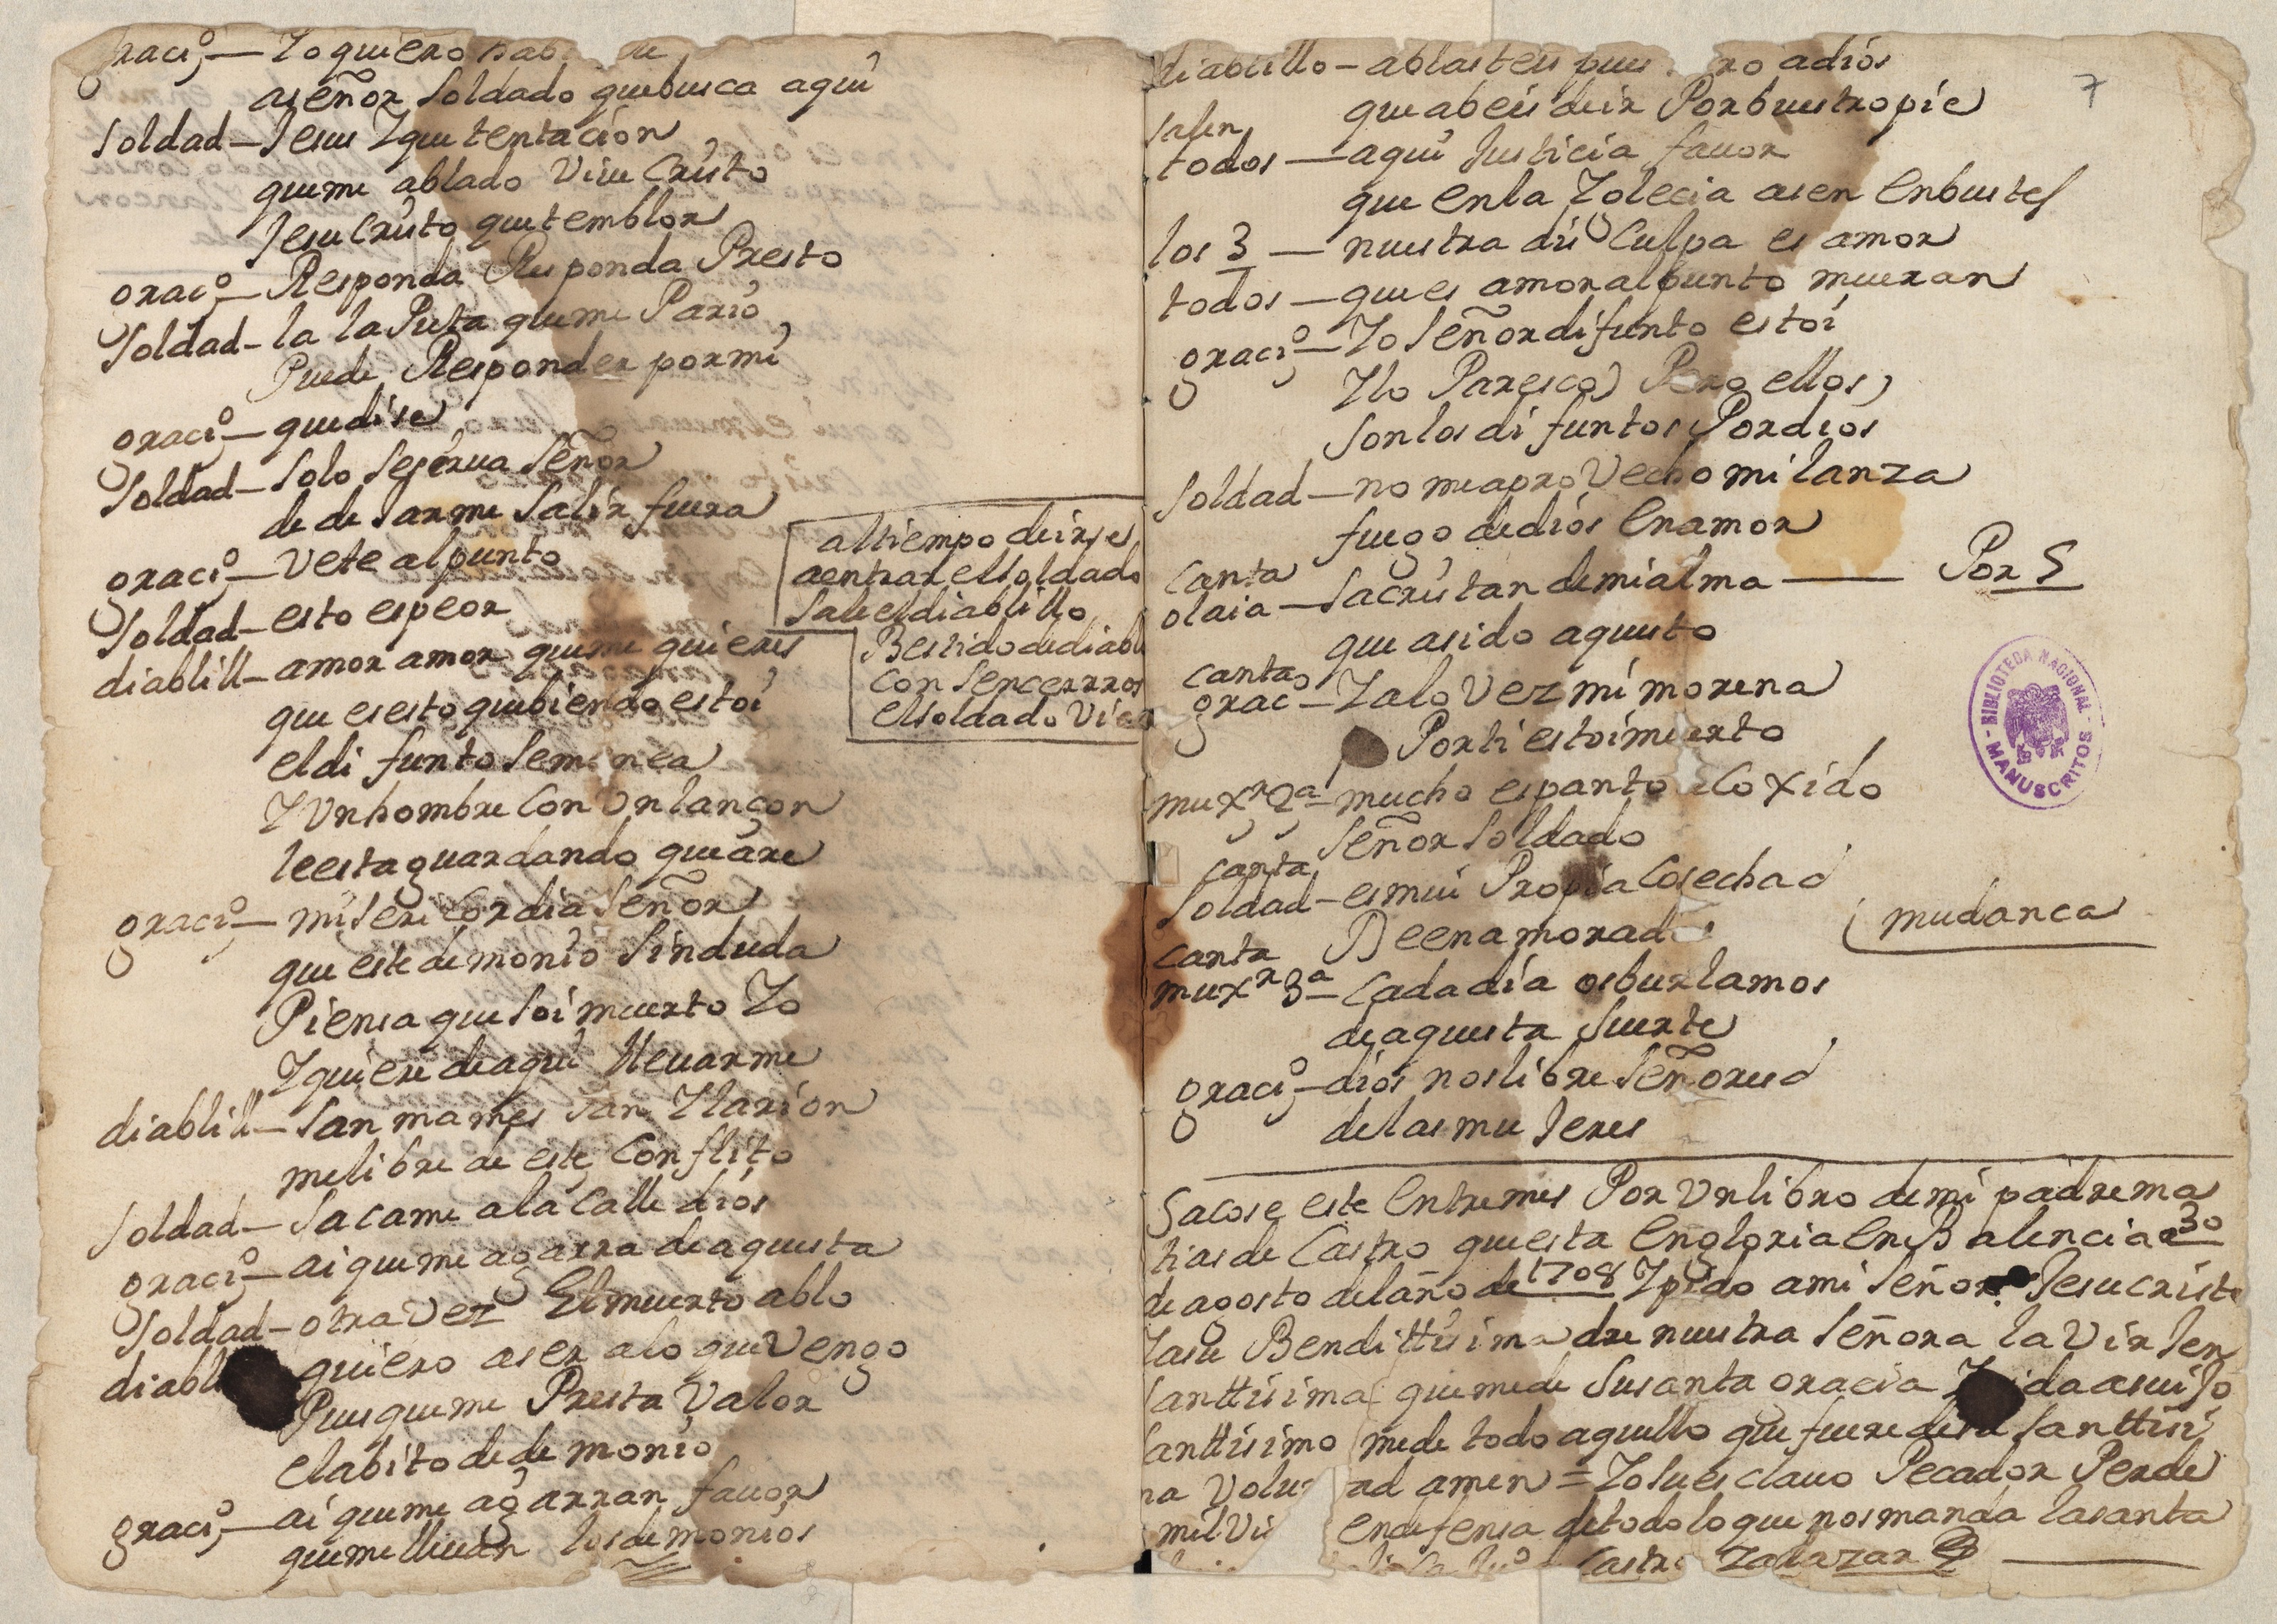 graciº — Yo quiero
aseñor soldado quebusca aqui
soldad — Jesus Yque tentacion
queme ablado Viue Cristo
JesuCristo quetemblor
graciº — Responda Responda Presto
soldad — la la Puta queme Pario
Puede Responder pormi
graciº — quedise
soldad — solo sesirua señor
de desarme salir fuera
graciº — vete alpunto
soldad — esto espeor
diablill — amor amor queme quieres
que esesto quebiendo estoi
eldifunto semenea
YVnhombre Con Vnlançon
leestaguardando queare
altiempo deirse
aentrar elsoldado
saleeldiablillo
Bestido dediabl
con sencerrros
elsoldado Vie
graciº — miseriCordia señor
que este demonio sinduda
Piensa que soi muerto Yo
Yquiere deaqui lleuarme
diablill — san mames san Ylarion
melibre de este Conflito
soldad — sacame ala Calle dios
graciº — ai queme agarra deaquesta
soldad — otra Vez El muerto ablo
diabl quiero aser alo que Vengo
Puesqueme Presta Valor
elabito de demonio
graciº — ai queme agarran fauor
quemelleuan losdemonios
diablillo — ablasteis pues ro adios
7
que abeis deir Porbuestropie
salen
todos — aqui Justicia fauor
que enla Yglecia asen enbustes
los 3 — nuestra dis Culpa es amor
todos — ques amor alpunto mueran
graciº — Yo señor difunto estoi
Ylo Paresco Pero ellos
sonlos difuntos Pordios
soldad — no meaproVecho mi lanza
fuego dedios enamor
canta
olaia — sacristan demialma — Por 5
que asido aquesto
canta
graco — Yalo Vez mi morena
Porti estoimuerto
muxr 2a — mucho espanto a Coxido
señor soldado
canta
soldad — esmui Propia Cosecha
De enamorado
mudanca
canta
muxr 3a — Cada dia osburlamos
deaquesta suerte
graciº — dios noslibre señores
delas muJeres
Sacose este entremes Por Vnlibro demi padre ma
tias de Castro questa engloria enBalencia a 30
de agosto delaño de 1708 Ypido ami señor Jesucristo
Yasu Bendittisima dre nuestra señora la VirJen
santtisima quemede susanta gracia Y ida asuiJo
santtisimo mede todo aquello que fuere desu santtisi
ma Volun ad amen = Yo su esclauo Pecador Perde
mil Vi endefensa detodolo que nosmanda lasanta
Castro Zalazar
BIBLIOTECA NACIONAL
MANUSCRITOS